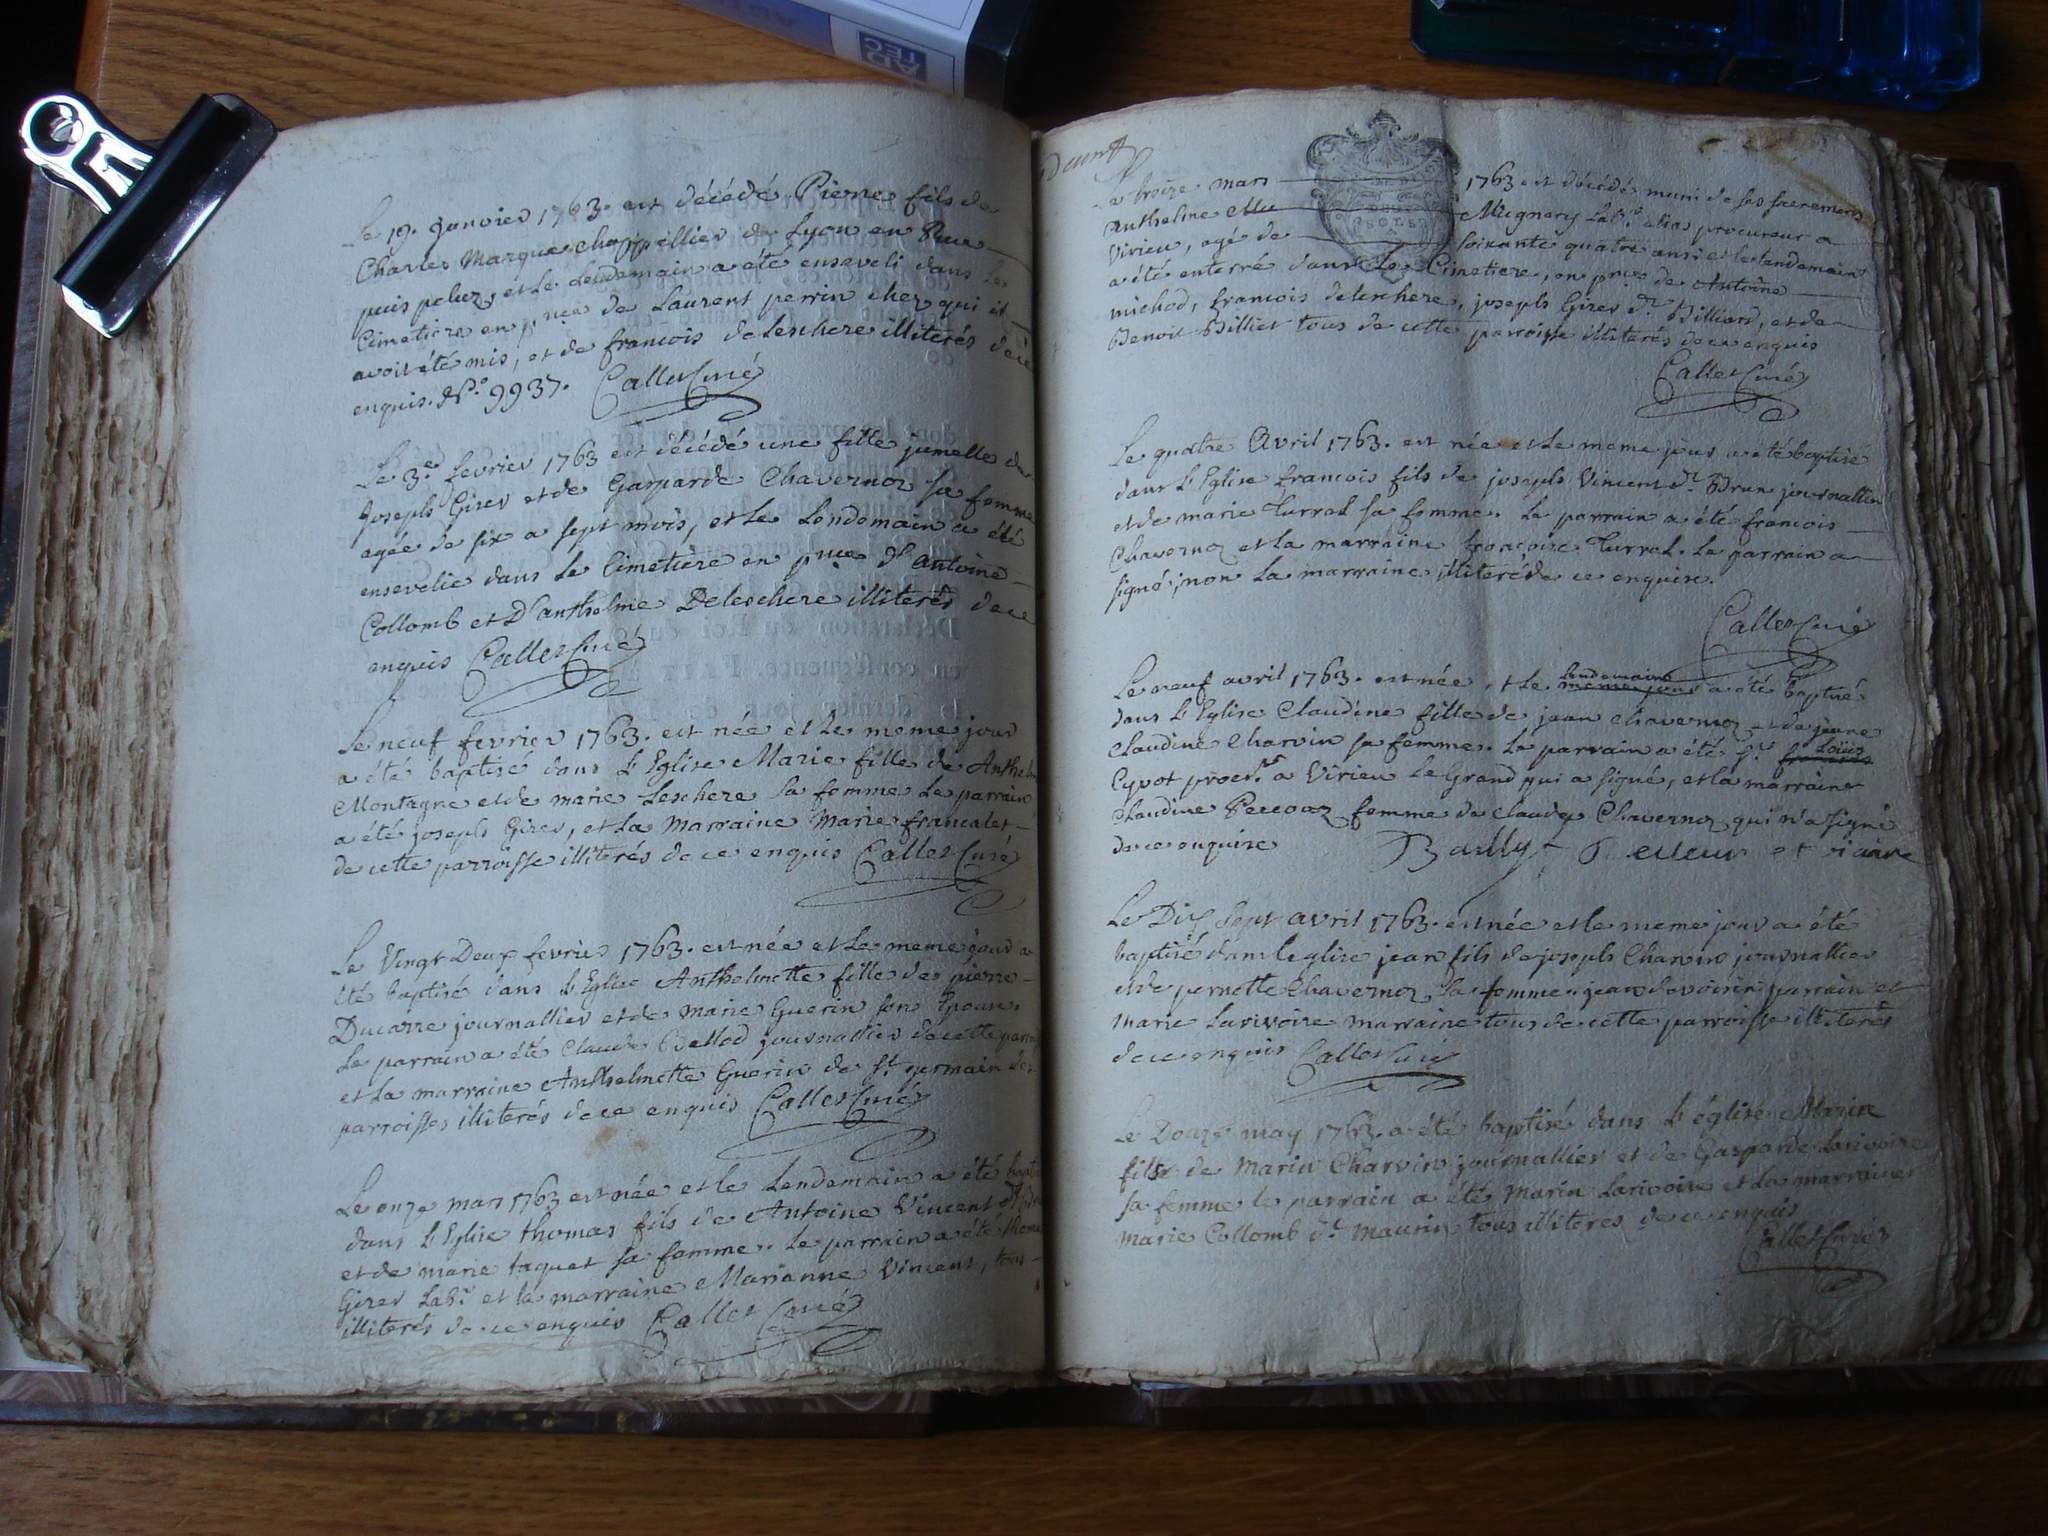 AD
TEC
Le 19. janvier 1763. est décédé Pierre fils de
Charles Marque chappellier de Lyon en Rue
puis peluz, et le lendemain a eté enseveli dans le
Cimetiere en p.nce de Laurent perrin chez qui il
avoit été mis, et de francois deleschere illiterés de ce
enquis. N.o 9937. Callet Curé
Le 3.e fevrier 1763 est décédé une fille jumelle de
joseph Girer et de Gasparde Chavernoz sa femme
agée de six a sept mois, et le Lendemain a été
ensevelie dans le Cimetiere en p.nce d'antoine
Collomb et D'anthelme Deleschere illiterés de ce
enquis Callet Curé
Le neuf fevrier 1763. est née et le meme jour
a été baptise dans L'Eglise Marie fille de Anthelme
Montagne et de marie Leschere sa femme Le parrain
a été joseph Girer, et la Marraine Marie francalet
de cette parroisse illiterés de ce enquis Callet Curé
Le Vingt Deux fevrier 1763. est née et le meme jour a
été baptisé dans L'Eglise Anthelmette fille de pierre
Ducarre journallier et de marie Guerin son Epouse
Le parrain a été Claude Bellod journallier de cette parr
et la marraine Anthelmette Guerin de St. germain les
parroisses illiterés de ce enquis Callet Curé
Le onze mars 1763 est née et le Lendemain a été bapt
dans L'Eglise thomas fils de Antoine Vincent d.t Br
et de marie taquet sa femme. Le parrain a été thoma
Girer Lab.r et la marraine Marianne Vincent, tous
illiterés de ce enquis Callet Curé
Le treize mars 1763 est décédé muni de ses sacremens
Anthelme Mu Mugnery Lab.r élias procureur a
Virieu, agé de soixante quatre ans et le lendemain
a été enterré dans Le Cimetiere, en p.nce de Antoine
michod, francois deleschere, joseph Girer d.t Billiard, et de
Benoit Billiet tous de cette parroisse illiterés de ce enquis
Callet Curé
Le quatre Avril 1763. est née et le meme jour a été baptisé
dans L'Eglise francois fils de joseph Vincent d.t Brun journallier
et de marie Turrel sa femme. Le parrain a été francois
Chavernoz et la marraine françoise Turrel. Le parrain a
signé, non La marraine illiteré de ce enquise.
Callet Curé
Le neuf avril 1763. est née et le meme jour lendemain a été baptisé
dans L'Eglise Claudine fille de jean Chavernoz et de jeune
Claudine Charvin sa femme. Le parrain a été S.r francois Loüis
Cyvot procr. a Virieu Le Grand qui a signé, et la marraine
Claudine femme de claude Chavernoz qui n'a signé
de ce enquise Bailly
Le Dix Sept avril 1763. est née et le meme jour a été
baptisé dans l'eglise jean fils de joseph Charvin journallier
et de pernette Chavernoz sa femme. jean devoirin parrain et
Marie Larivoire marraine tous de cette parroisse illiterés
de ce enquis Callet Curé
Le Douze may 1763. a été baptisé dans L'église Marin
fils de Marin Charvin journallier et de Gasparde Larivoire
sa femme le parrain a été Marin Larivoire et la marraine
Marie Collomb d.t Maurin tous illiteres de ce enquis
Callet Curé